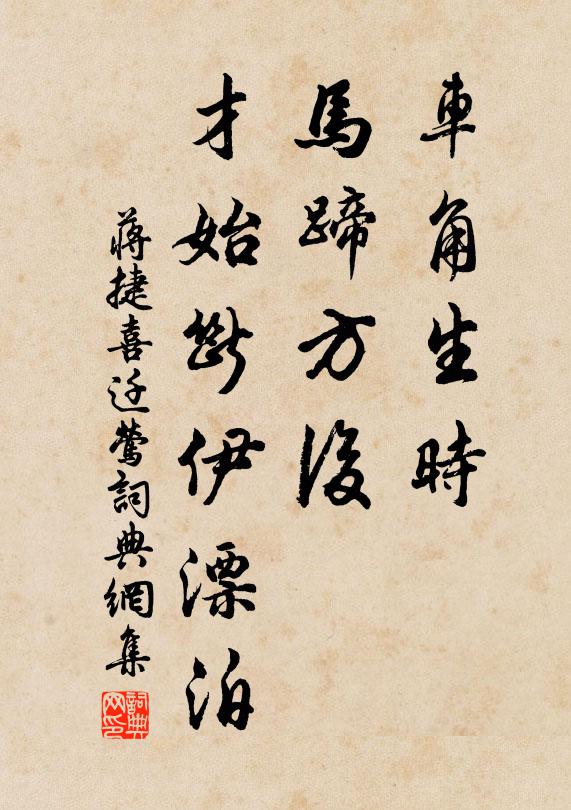 車角生時
馬蹄方後
才始斷伊漂泊
蔣捷喜迁鶯詞典網集
詞典网印